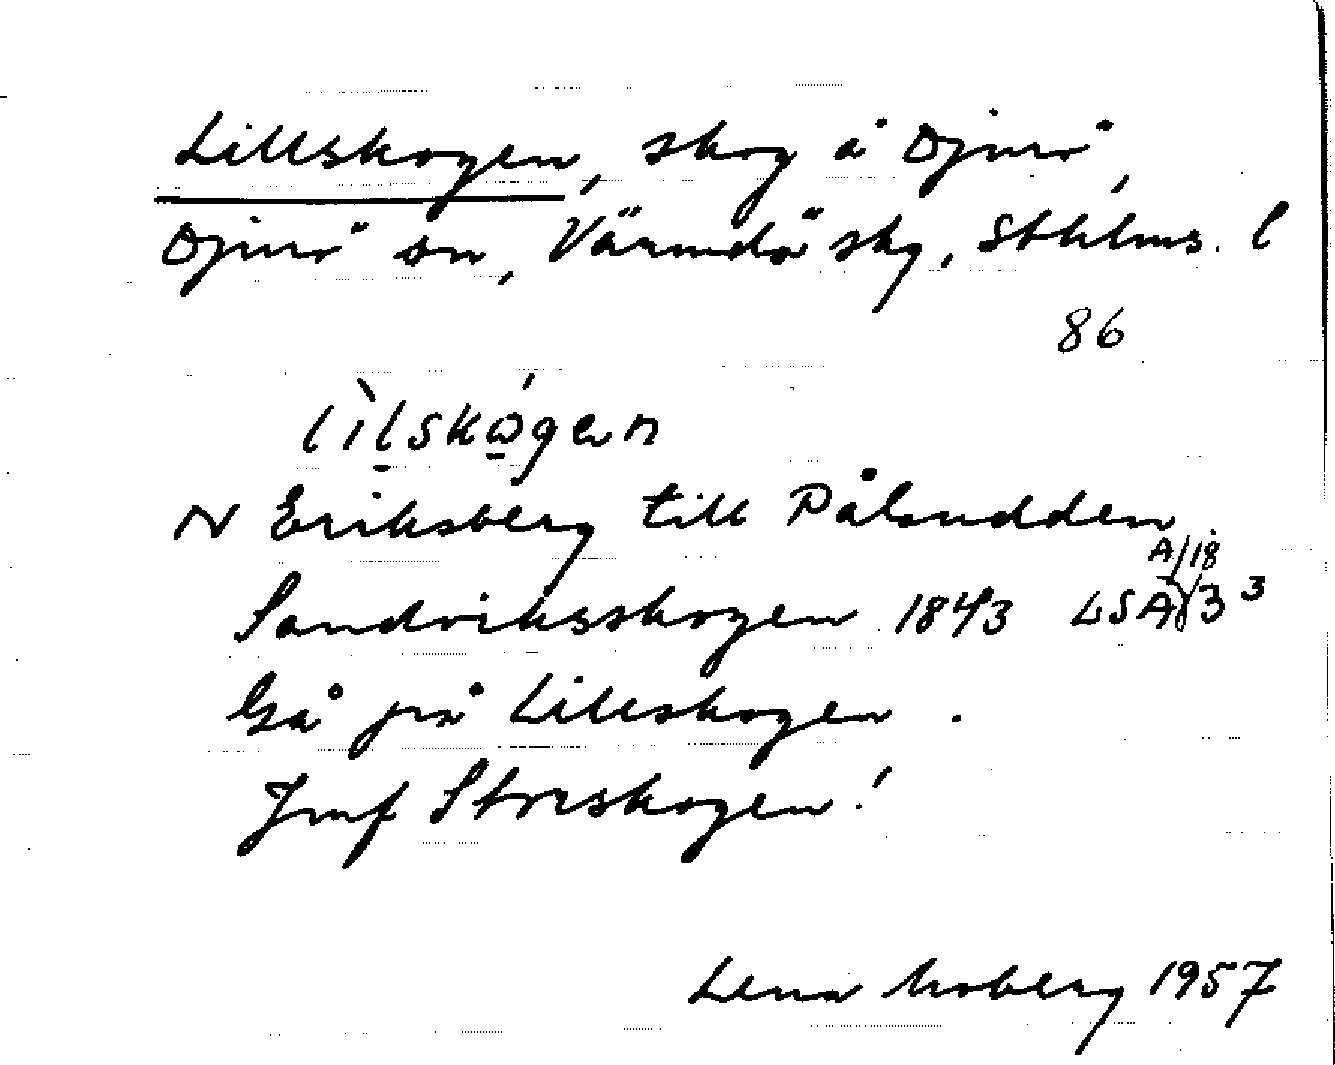 Lillskogen, skog å Djurö,
Djurö sn, Värmdö skg, Sthlms. l
86
lìlskǿgen
N Eriksberg till Pålsudden
Sandviksskogen 1843 LSA A/18 33
Gå på Lillskogen.
Jmf Storskogen!
Lena Moberg 1957